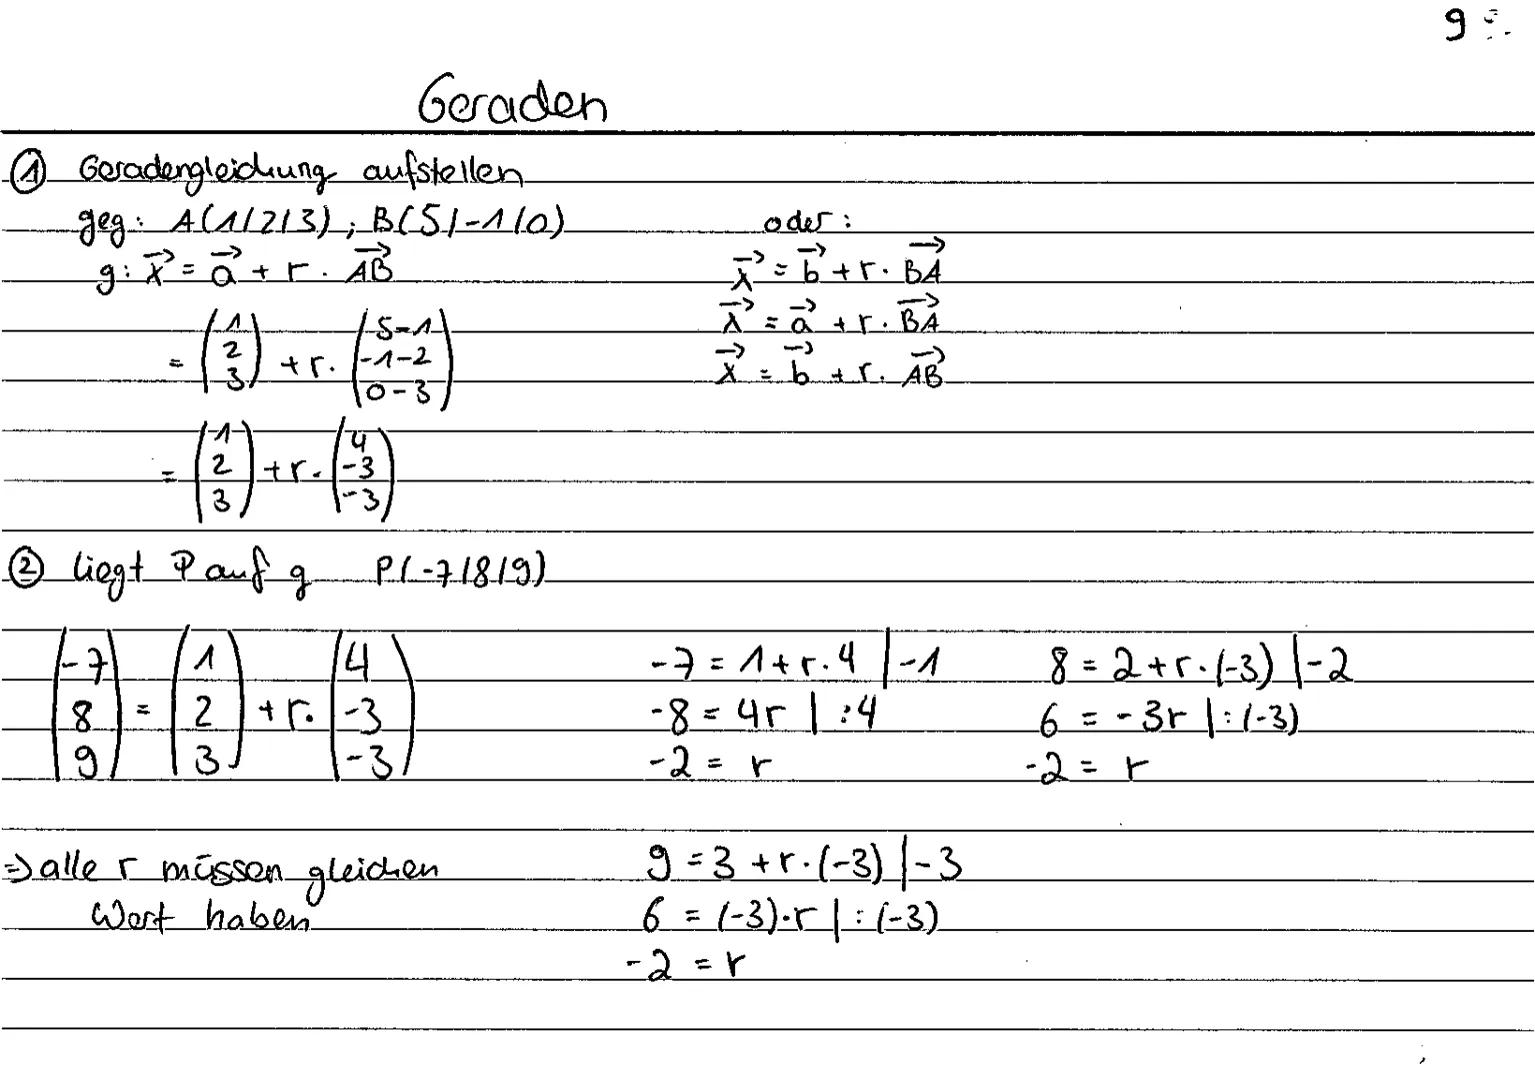 9
Geraden
① Geradengleichung aufstellen
geg: A(1/2/3) ; B(5/-1/0)
g: x⃗ = a⃗ + r · A⃗B⃗
= (1 2 3) + r · (5-1 -1-2 0-3)
= (1 2 3) + r · (4 -3 -3)
oder:
x⃗ = b⃗ + r · B⃗A⃗
x⃗ = a⃗ + r · B⃗A⃗
x⃗ = b⃗ + r · A⃗B⃗
② liegt P auf g P(-7/8/9)
(-7 8 9) = (1 2 3) + r · (4 -3 -3)
-7 = 1 + r · 4 | -1
-8 = 4r | :4
-2 = r
8 = 2 + r · (-3) | -2
6 = -3r | :(-3)
-2 = r
9 = 3 + r · (-3) | -3
6 = (-3) · r | : (-3)
-2 = r
⇒ alle r müssen gleichen
Wert haben